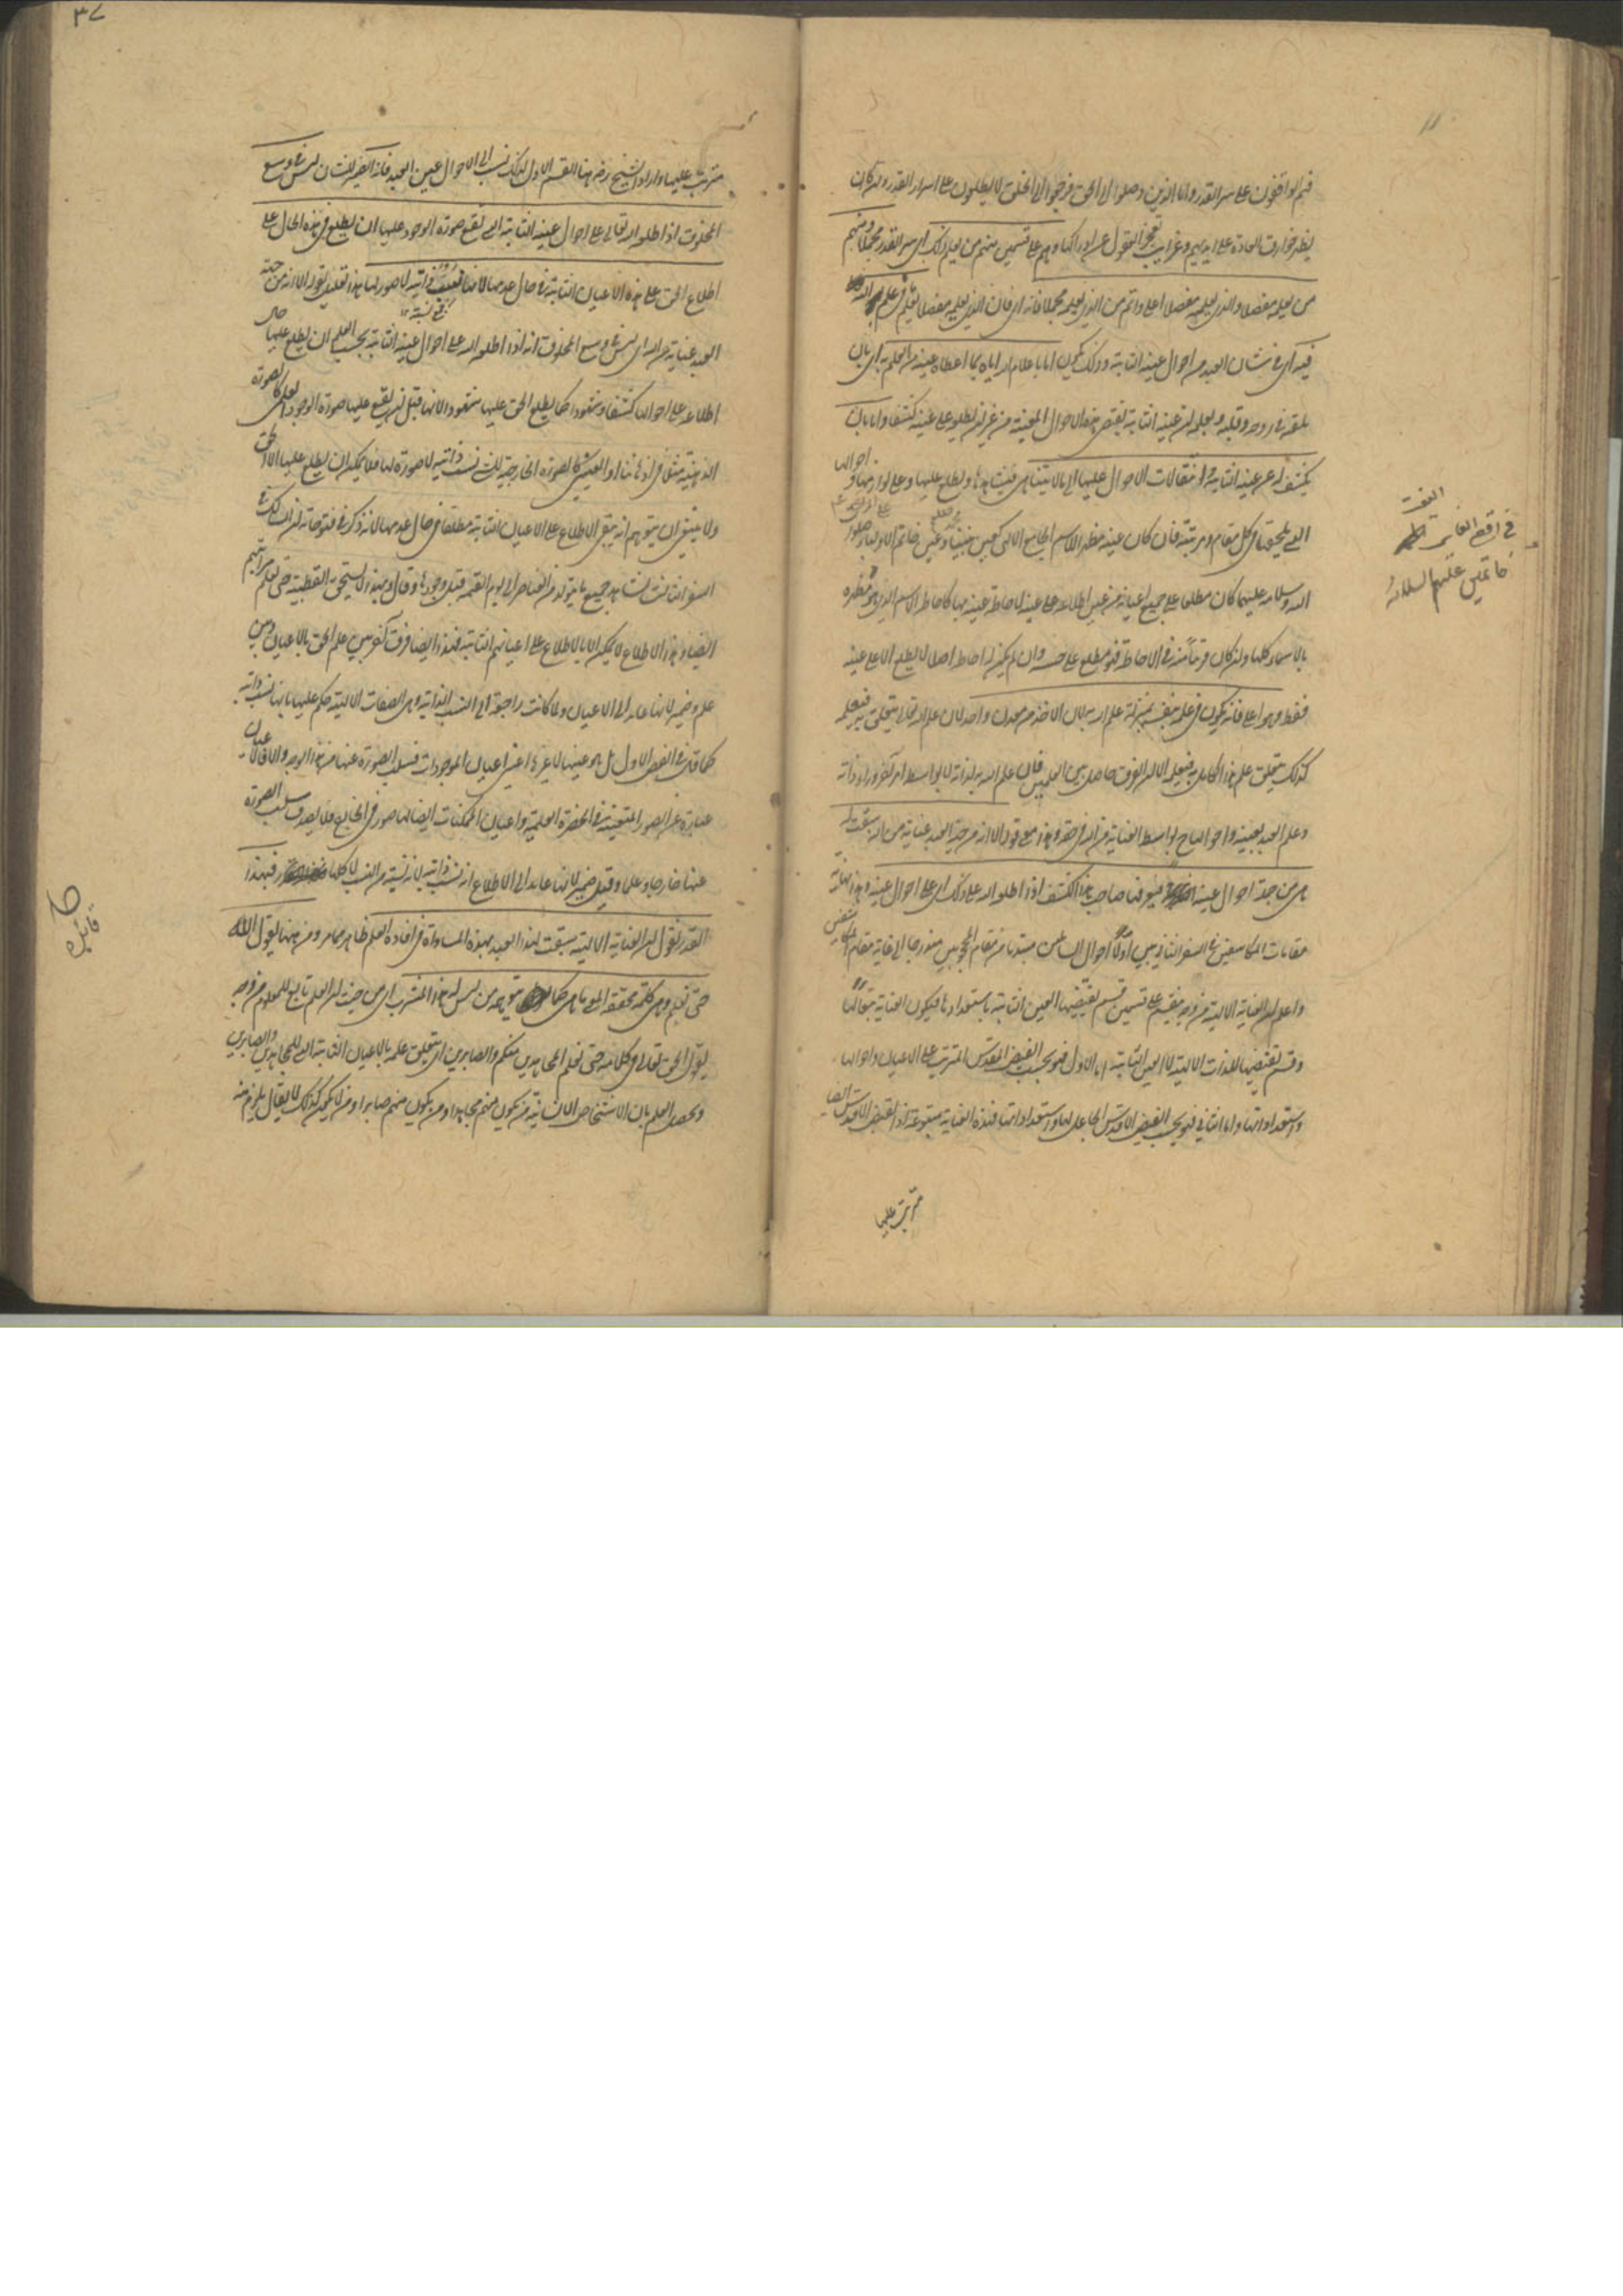 فهم الواقفون على سر القدر واما الذين وصلوا الى الحق فرجعوا الى الخلق لا يطلعون على اسرار القدر وان كان
يظهر خوارق العادة على ايديهم وغرايب تعجز العقول عن ادراكها وهم على قسمين منهم من يعلم ذلك اى سر القدر مجملا ومنهم
من يعلمه مفصلا والذى يعلمه مفصلا اعلى واتم من الذى يعلمه مجملا فانه اى فان الذى يعلمه مفصلا يعلم ما فى علم الله
فيه اى فى شان العبد من احوال عينه الثابتة وذلك يكون اما باعلام الله اياه بما اعطاه عينه من العلم به اى بان
يلقه فى روعه وقلبه ويعلمه ان عينه الثابتة يقتضى هذه الاحوال المعينة من غير ان يطلع على عينه كشفا واما بان
يكشف له عن عينه الثابتة وانتقالات الاحوال عليها الى ما لا يتناهى فيشاهدها ويطلع عليها وعلى لوازمها واحوالها
التى يلحقها فى كل مقام ومرتبة فان كان عينه مظهر الاسم الجامع الالهى كعين نبينا وعين خاتم الاولياء صلوات
الله وسلامه عليهما كان مطلعا على جميع الاعيان من عين اطلاعه على عينه لاحاطة عينه بها كاحاطة الاسم الذى هو مظهره
بالاسماء كلها وان كان قريبا منه فى الاحاطة فهو مطلع على حسبه وان لم يكن له احاطة اصلا لا يطلع الا على عينه
فقط وهو اعلى فانه يكون فى علمه بنفسه بمنزلة علم الله به لان الاخذ من معدن واحد لان علم الله تعالى يتعلق به فيعلمه
كذلك يتعلق علم هذا الكامل به فيعلمه الا ان الفرق حاصل بين العلمين فان علم الله به لذاته لا بواسطة امر آخر وراء ذاته
وعلم العبد بعينه واحوالها بواسطة العناية من الله فى حقه وهذا معنى قوله الا انه من جهة العبد عناية من الله سبقت له
هى من جملة احوال عينه يعرفها صاحب هذا الكشف اذا اطلعه الله على ذلك اى على احوال عينه وهذا نهاية
مقامات المكاشفين فى السفر الثانى بين اولا احوال السالكين مبتديا من مقام المحجوبين مندرجا الى غاية مقام المكاشفين
واعلم ان العناية الالهية من وجه ينقسم على قسمين قسم يقتضيها العين الثابتة باستعدادها فيكون العناية تبعا لها
وقسم تقتضيها الذات الالهية لا العين الثابتة اما الاول فهو بحسب الفيض المقدس المترتب على الاعيان واحوالها
واستعداداتها واما الثانى فهو بحسب الفيض الاقدس الجاعل لها واستعداداتها فهذه العناية متبوعة اذ الفيض الاقدس ايضا
مترتب عليها
مترتب عليها واراد الشيخ رضه هنا القسم الاول لذلك نسب الى احوال عين العبد فانه القدر للانسان ليس فى وسع
المخلوق اذا اطلعه الله تعالى على احوال عينه الثابتة التى تقع صورة الوجود عليها ان يطلع فى هذه الحال على
اطلاع الحق على هذه الاعيان الثابتة فى حال عدمها لانها نسب ذاتية لا صورة لها هذا تعليل لقوله الا انه من جهة
العبد عناية من الله اى ليس فى وسع المخلوق انه اذا اطلعه الله على احوال عينه الثابتة بحسب العلم ان يطلع عليها حال
اطلاعه على احوالها كشفا وشهودا كما يطلع الحق عليها شهودا لانها قبل ان يقع عليها صورة الوجود العلمى كالصورة
الذهنية مثلا فى اذهاننا او العينى كالصورة الخارجية كانت نسب ذاتية لا صورة لها فلا يمكن ان يطلع عليها الا الحق
ولا ينبغى ان يتوهم انه ينفى الاطلاع على الاعيان الثابتة مطلقا فى حال عدمها لانه ذكر فى فتوحاته ان السالك فى
السفر الثالث يشاهد جميع ما يتولد من العناصر الى يوم القيمة قبل وجودها وقال وبهذا لا يستحق القطبية حتى يعلم مراتبهم
ايضا وهذا الاطلاع لا يمكن الا بالاطلاع على اعيانهم الثابتة فهذا ايضا فرق آخر بين علم الحق بالاعيان وبين
علمه وضمير لانها عائد الى الاعيان ولما كانت راجعة الى النسب الذاتية وهى الصفات الالهية حكم عليها بانها نسب ذاتية
كما قال فى الفص الاول بل هو عينها لا غيرها اعنى اعيان الموجودات فسلب الصورة عنها من هذا الوجه والا فالاعيان
عبارة عن الصور المتعينة فى الحضرة العلمية واعيان الممكنات ايضا لها صور فى الخارج فلا يصدق سلب الصورة
عنها خارجا وعلما وقيل ضمير لانها عائد الى الاطلاع انه نسب ذاتية لانه نسبة من النسب لا كلها فبهذا
القدر نقول ان العناية الالهية سبقت لهذا العبد بهذه المساواة فى افادة العلم ظاهر مما مر ومن ههنا يقول الله
حتى نعلم وهى كلمة محققة المعنى ما هى كما يتوهمه من ليس له هذا المشرب اى من حيث ان العلم تابع للمعلوم من وجه
يقول الحق تعالى فى كلامه حتى نعلم المجاهدين منكم والصابرين اى يتعلق علمه بالاعيان الثابتة التى للمجاهدين والصابرين
ويحصل العلم بان الاشخاص الانسانية من يكون منهم مجاهدا ومن يكون منهم صابرا ومن لا يكون كذلك لا يقال يلزم منه
فائدة
٣٧